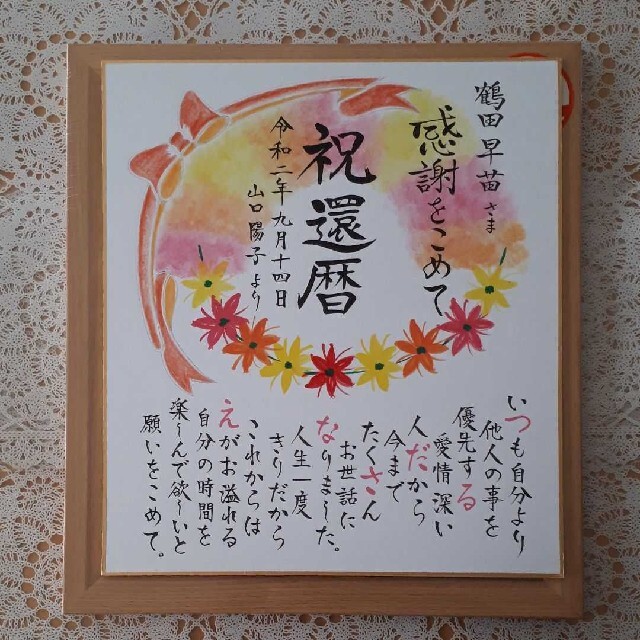 鶴田早苗さま
感謝をこめて
祝還暦
令和二年九月十四日
山口陽子より
いつも自分より
他人の事を
優先する
愛情深い
人だから
今まで
たくさん
お世話に
なりました。
人生一度
きりだから
これからは
えがお溢れる
自分の時間を
楽しんで欲しいと
願いをこめて。